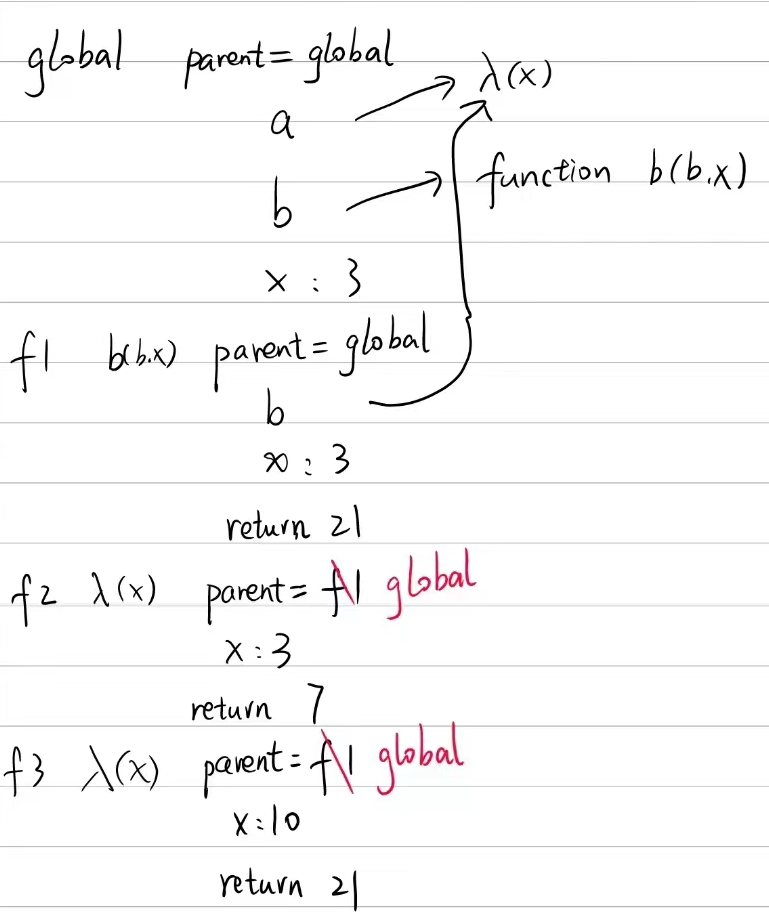 global parent = global
a → λ(x)
b → function b(b.x)
x : 3
f1 b(b.x) parent = global
b
x : 3
return 21
f2 λ(x) parent = f1 global
x : 3
return 7
f3 λ(x) parent = f1 global
x : 10
return 21